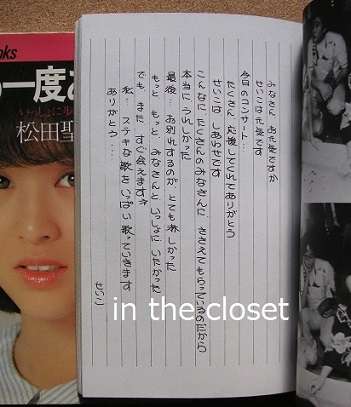 みなさん お元気ですか
せいこは元気です
今日のコンサート…
たくさん 応援してくれてありがとう
せいこは しあわせです
こんなに たくさんのみなさんに ささえてもらっているのだから
本当に うれしかった
最後… お別れするのが とても 淋しかった
もっと もっと みなさんと いっしょに いたかった
でも また すぐ会えます☆
私… ステキな歌を いっぱい 歌っていきます
ありがとう…
せいこ
ooks
一度あ
松田聖
in the closet